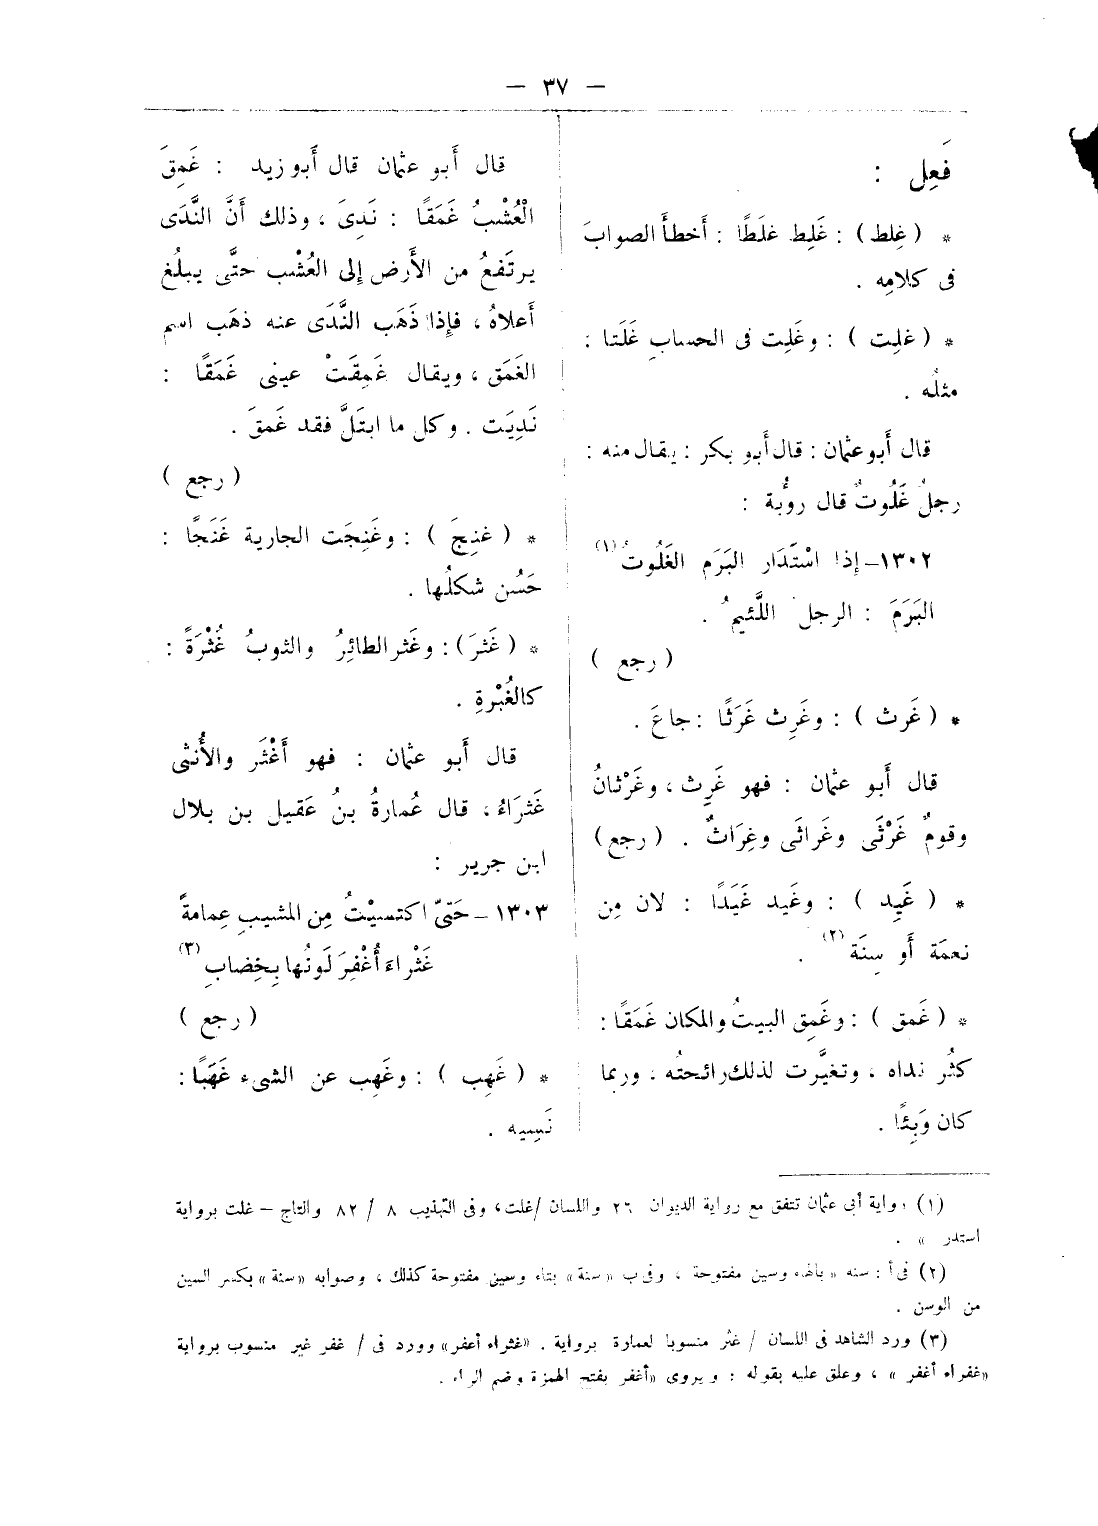 — ٣٧ —
فَعِل :
* ( غلِط ) : غَلِط غلَطًا : أَخطأَ الصوابَ
فى كلامِه .
* ( غلِت ) : وغَلِت فى الحسابِ غَلَتا :
مثلُه .
قال أَبو عثمان : قال أَبو بكر : يقال منه :
رجلٌ غَلُوتٌ قال روُّبة :
١٣٠٢ – إِذا اسْتَدَار البَرَم الغَلُوتُ (١)
البَرَمَ : الرجل اللَّئيمُ .
( رجع )
* ( غَرث ) : وغَرِث غَرَثًا : جاعَ .
قال أَبو عثمان : فهو غَرِث ، وغَرْثانُ
وقومٌ غَرْثَى وغَراثَى وغِرَاثٌ . ( رجع )
* ( غَيِد ) : وغَيد غَيَدًا : لان مِن
نعمَة أَو سِنَة (٢) .
* ( غَمق ) : وغَمِق البيتُ والمكان غَمَقًا :
كثُر نداه ، وتغيَّرت لذلك رائحتُه . وربما
كان وَبِئًا .
قال أَبو عثمان قال أَبو زيد : غَمِقَ
الْعُشْبُ غَمَقًا : نَدِىَ ، وذلك أَنَّ النَّدَى
يرتَفعُ من الأَرض إِلى العُشْب حتَّى يبلُغ
أَعلاهُ ، فإِذا ذَهَب النَّدَى عنه ذهَب اسم
الغَمَق ، ويقال غَمِقَتْ عينى غَمَقًا :
نَدِيَت . وكل ما ابتَلَّ فقد غَمقَ .
( رجع )
* ( غنِجَ ) : وغَنِجَت الجارية غَنَجًا :
حَسُن شكلُها .
* ( غَثرَ ) : وغَثر الطائِرُ والثوبُ غُثْرَةً :
كالغُبْرةِ .
قال أَبو عثمان : فهو أَغْثَر والأُنثى
غَثرَاءُ ، قال عُمارةُ بنُ عَقيل بن بلال
ابن جرير :
١٣٠٣ – حَتىّ اكتسيْتُ مِن المشيبِ عِمامةً
غَثْراءَ أُغْفِرَ لَونُها بِخِضابِ (٣)
( رجع )
* ( غَهِب ) : وغَهِب عن الشىء غَهَبًا :
نَسِيه .
(١) رواية أبى عثمان تتفق مع رواية الديوان ٢٦ واللسان / غلت ، وفى التهذيب ٨ / ٨٢ والتاج – غلت برواية
استدر » .
(٢) فى أ : سنه « بالهاء وسين مفتوحة ، وفى ب « سنة » بتاء وسين مفتوحة كذلك ، وصوابه « سنة » بكسر السين
من الوسن .
(٣) ورد الشاهد فى اللسان / غثر منسوبا لعمارة برواية . « غثراء أعفر » وورد فى / غفر غير منسوب برواية
« غفراء أغفر » ، وعلق عليه بقوله : ويروى « أغفر بفتح الهمزة وضم الراء .